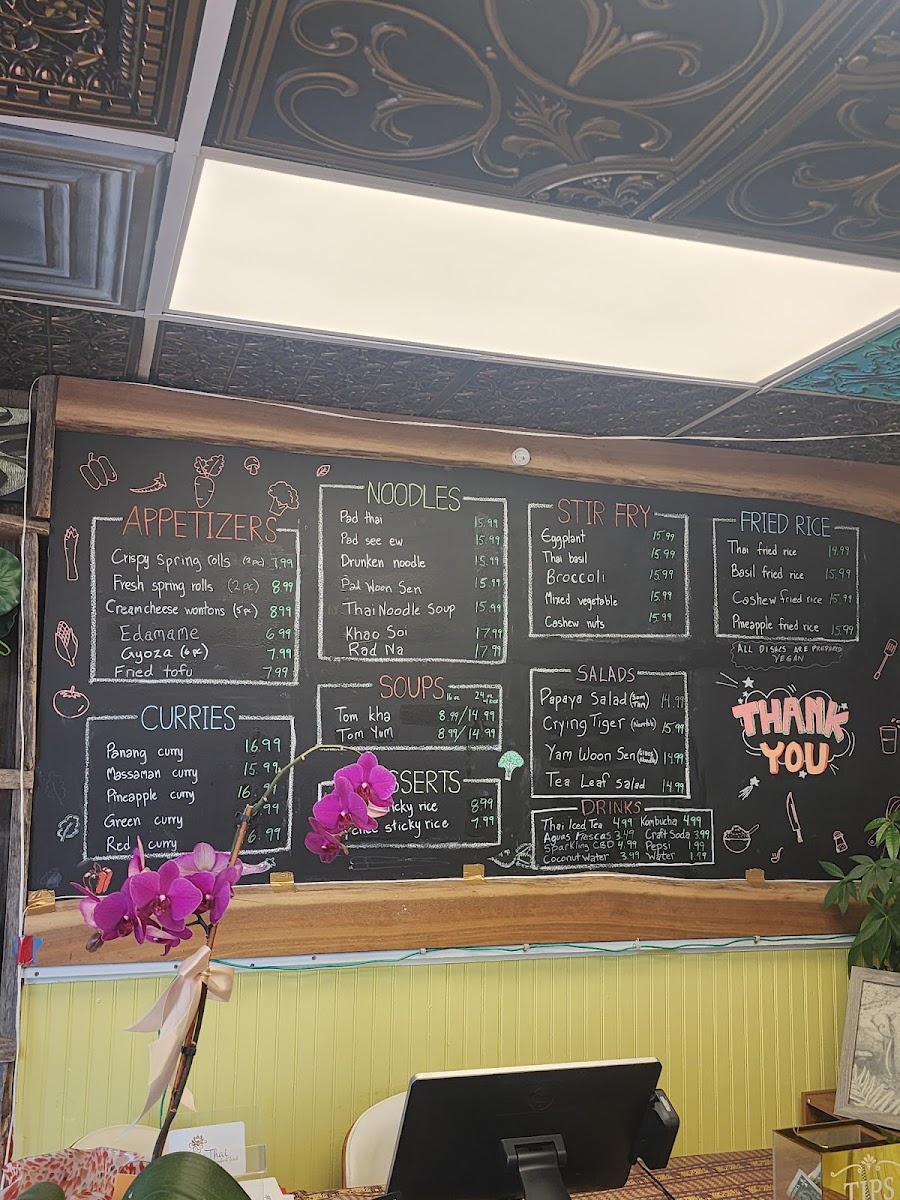 APPETIZERS
Crispy Spring rolls (2pc) 7.99
Fresh spring rolls (2pc) 8.99
Creamcheese wontons (5pc) 8.99
Edamame 6.99
Gyoza (6pc) 7.99
Fried tofu 7.99
CURRIES
Panang curry 16.99
Massaman curry 15.99
Pineapple curry 16.
Green curry .99
Red curry 6.99
NOODLES
Pad thai 15.99
Pad see ew 15.99
Drunken noodle 15.99
Pad Woon Sen 15.99
Thai Noodle Soup 15.99
Khao Soi 17.99
Rad Na 17.99
SOUPS 16oz 24oz
Tom kha 8.99/14.99
Tom Yum 8.99/14.99
SSERTS
sticky rice 8.99
sticky rice 7.99
STIR FRY
Eggplant 15.99
Thai basil 15.99
Broccoli 15.99
Mixed vegetable 15.99
Cashew nuts 15.99
SALADS
Papaya Salad (Som Tum) 14.99
Crying Tiger 15.99
Yam Woon Sen (Glass Noodle) 14.99
Tea Leaf Salad 14.99
DRINKS
Thai Iced Tea 4.99 Kombucha 4.99
Aguas Frescas 3.49 Craft Soda 3.99
Sparkling CBD 4.99 Pepsi 1.99
Coconut water 3.99 Water 1.99
FRIED RICE
Thai fried rice 14.99
Basil fried rice 15.99
Cashew fried rice 15.99
Pineapple fried rice 15.99
ALL DISHES ARE PREPARED
VEGAN
THANK
YOU
Thai
TIPS